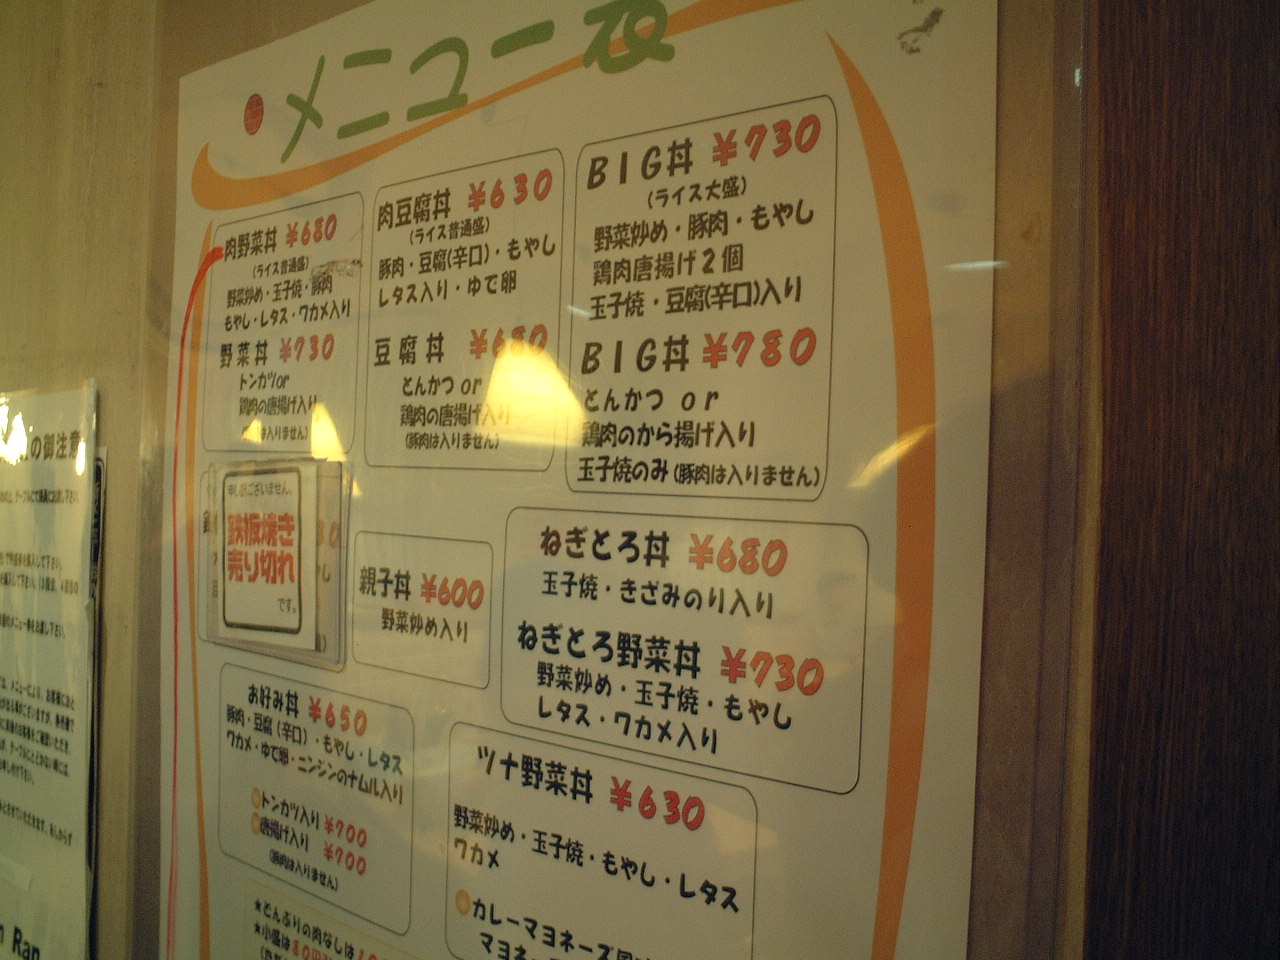 メニュー表
肉野菜丼 ¥680
(ライス普通盛)
野菜炒め・玉子焼・豚肉
もやし・レタス・ワカメ入り
野菜丼 ¥730
トンカツor
鶏肉の唐揚げ入り
は入りません)
肉豆腐丼 ¥630
(ライス普通盛)
豚肉・豆腐(辛口)・もやし
レタス入り・ゆで卵
豆腐丼 ¥680
とんかつ or
鶏肉の唐揚げ入り
(豚肉は入りません)
BIG丼 ¥730
(ライス大盛)
野菜炒め・豚肉・もやし
鶏肉唐揚げ2個
玉子焼・豆腐(辛口)入り
BIG丼 ¥780
とんかつ or
鶏肉のから揚げ入り
玉子焼のみ(豚肉は入りません)
申し訳ございません。
鉄板焼き
売り切れ
です。
親子丼 ¥600
野菜炒め入り
ねぎとろ丼 ¥680
玉子焼・きざみのり入り
ねぎとろ野菜丼 ¥730
野菜炒め・玉子焼・もやし
レタス・ワカメ入り
お好み丼 ¥650
豚肉・豆腐(辛口)・もやし・レタス
ワカメ・ゆで卵・ニンジンのナムル入り
トンカツ入り ¥700
唐揚げ入り ¥700
(豚肉は入りません)
ツナ野菜丼 ¥630
野菜炒め・玉子焼・もやし・レタス
ワカメ
カレーマヨネーズ風
マヨネーズ
★どんぶりの肉なしは
★小盛は
の御注意
Ran